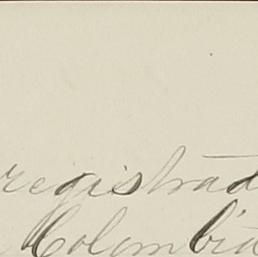 registrad
Colombia